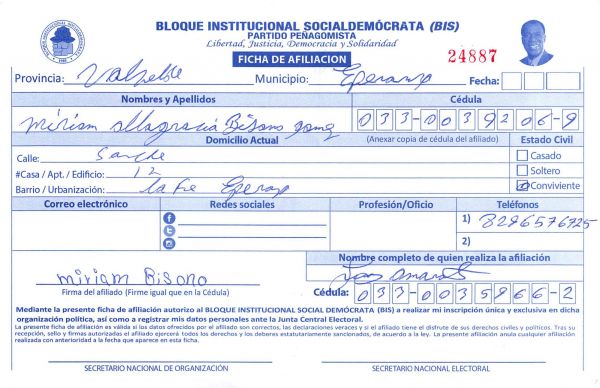 BLOQUE INSTITUCIONAL SOCIALDEMÓCRATA (BIS)
PARTIDO PEÑAGOMISTA
Libertad, Justicia, Democracia y Solidaridad
FICHA DE AFILIACION
24887
Provincia: Municipio: Fecha:
Nombres y Apellidos Cédula
miriam altagracia Bisono 033-0039206-9
Domicilio Actual (Anexar copia de cédula del afiliado) Estado Civil
Calle: Casado
#Casa / Apt. / Edificio: 12 Soltero
Barrio / Urbanización: la fe Conviviente
Correo electrónico Redes sociales Profesión/Oficio Teléfonos
1) 8296576725
2)
Nombre completo de quien realiza la afiliación
miriam Bisono
Firma del afiliado (Firme igual que en la Cédula) Cédula: 033-0035966-2
Mediante la presente ficha de afiliación autorizo al BLOQUE INSTITUCIONAL SOCIAL DEMÓCRATA (BIS) a realizar mi inscripción única y exclusiva en dicha
organización política, así como a registrar mis datos personales ante la Junta Central Electoral.
La presente ficha de afiliación es válida si los datos ofrecidos por el afiliado son correctos, las declaraciones veraces y si el afiliado tiene el disfrute de sus derechos civiles y políticos. Tras su
recepción, sello y firmas autorizadas el afiliado ejercerá todos los derechos y los deberes estatutariamente sancionados, de acuerdo a la ley. La presente afiliación anula cualquier afiliación
realizada con anterioridad a la fecha que aparece en esta ficha.
SECRETARIO NACIONAL DE ORGANIZACIÓN SECRETARIO NACIONAL ELECTORAL